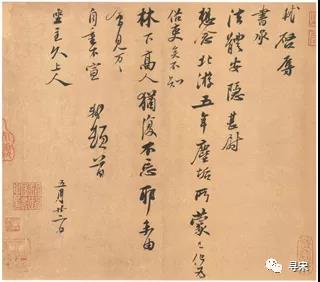 軾啓辱
書承
法體安隱甚尉
想念北游五年塵垢所蒙已化為
俗吏矣不知
林下高人猶復不忘耶未由
會見万万
自重不宣 軾頓首
五月廿二日
坐主久上人
寻宋